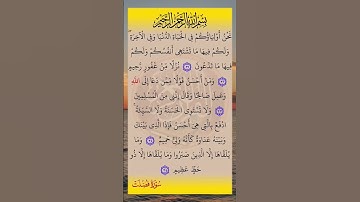 بسم الله الرحمن الرحيم
نَحْنُ أَوْلِيَاؤُكُمْ فِي الْحَيَاةِ الدُّنْيَا وَفِي الْآخِرَةِ
وَلَكُمْ فِيهَا مَا تَشْتَهِي أَنْفُسُكُمْ وَلَكُمْ
فِيهَا مَا تَدَّعُونَ ۝ نُزُلًا مِنْ غَفُورٍ رَحِيمٍ
۝ وَمَنْ أَحْسَنُ قَوْلًا مِمَّنْ دَعَا إِلَى اللَّهِ
وَعَمِلَ صَالِحًا وَقَالَ إِنَّنِي مِنَ الْمُسْلِمِينَ
۝ وَلَا تَسْتَوِي الْحَسَنَةُ وَلَا السَّيِّئَةُ
ادْفَعْ بِالَّتِي هِيَ أَحْسَنُ فَإِذَا الَّذِي بَيْنَكَ
وَبَيْنَهُ عَدَاوَةٌ كَأَنَّهُ وَلِيٌّ حَمِيمٌ ۝ وَمَا
يُلَقَّاهَا إِلَّا الَّذِينَ صَبَرُوا وَمَا يُلَقَّاهَا إِلَّا ذُو
حَظٍّ عَظِيمٍ ۝
سُورَةُ فُصِّلَتْ